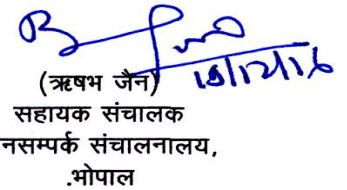 (ऋषभ जैन)
सहायक संचालक
नसम्पर्क संचालनालय,
.भोपाल